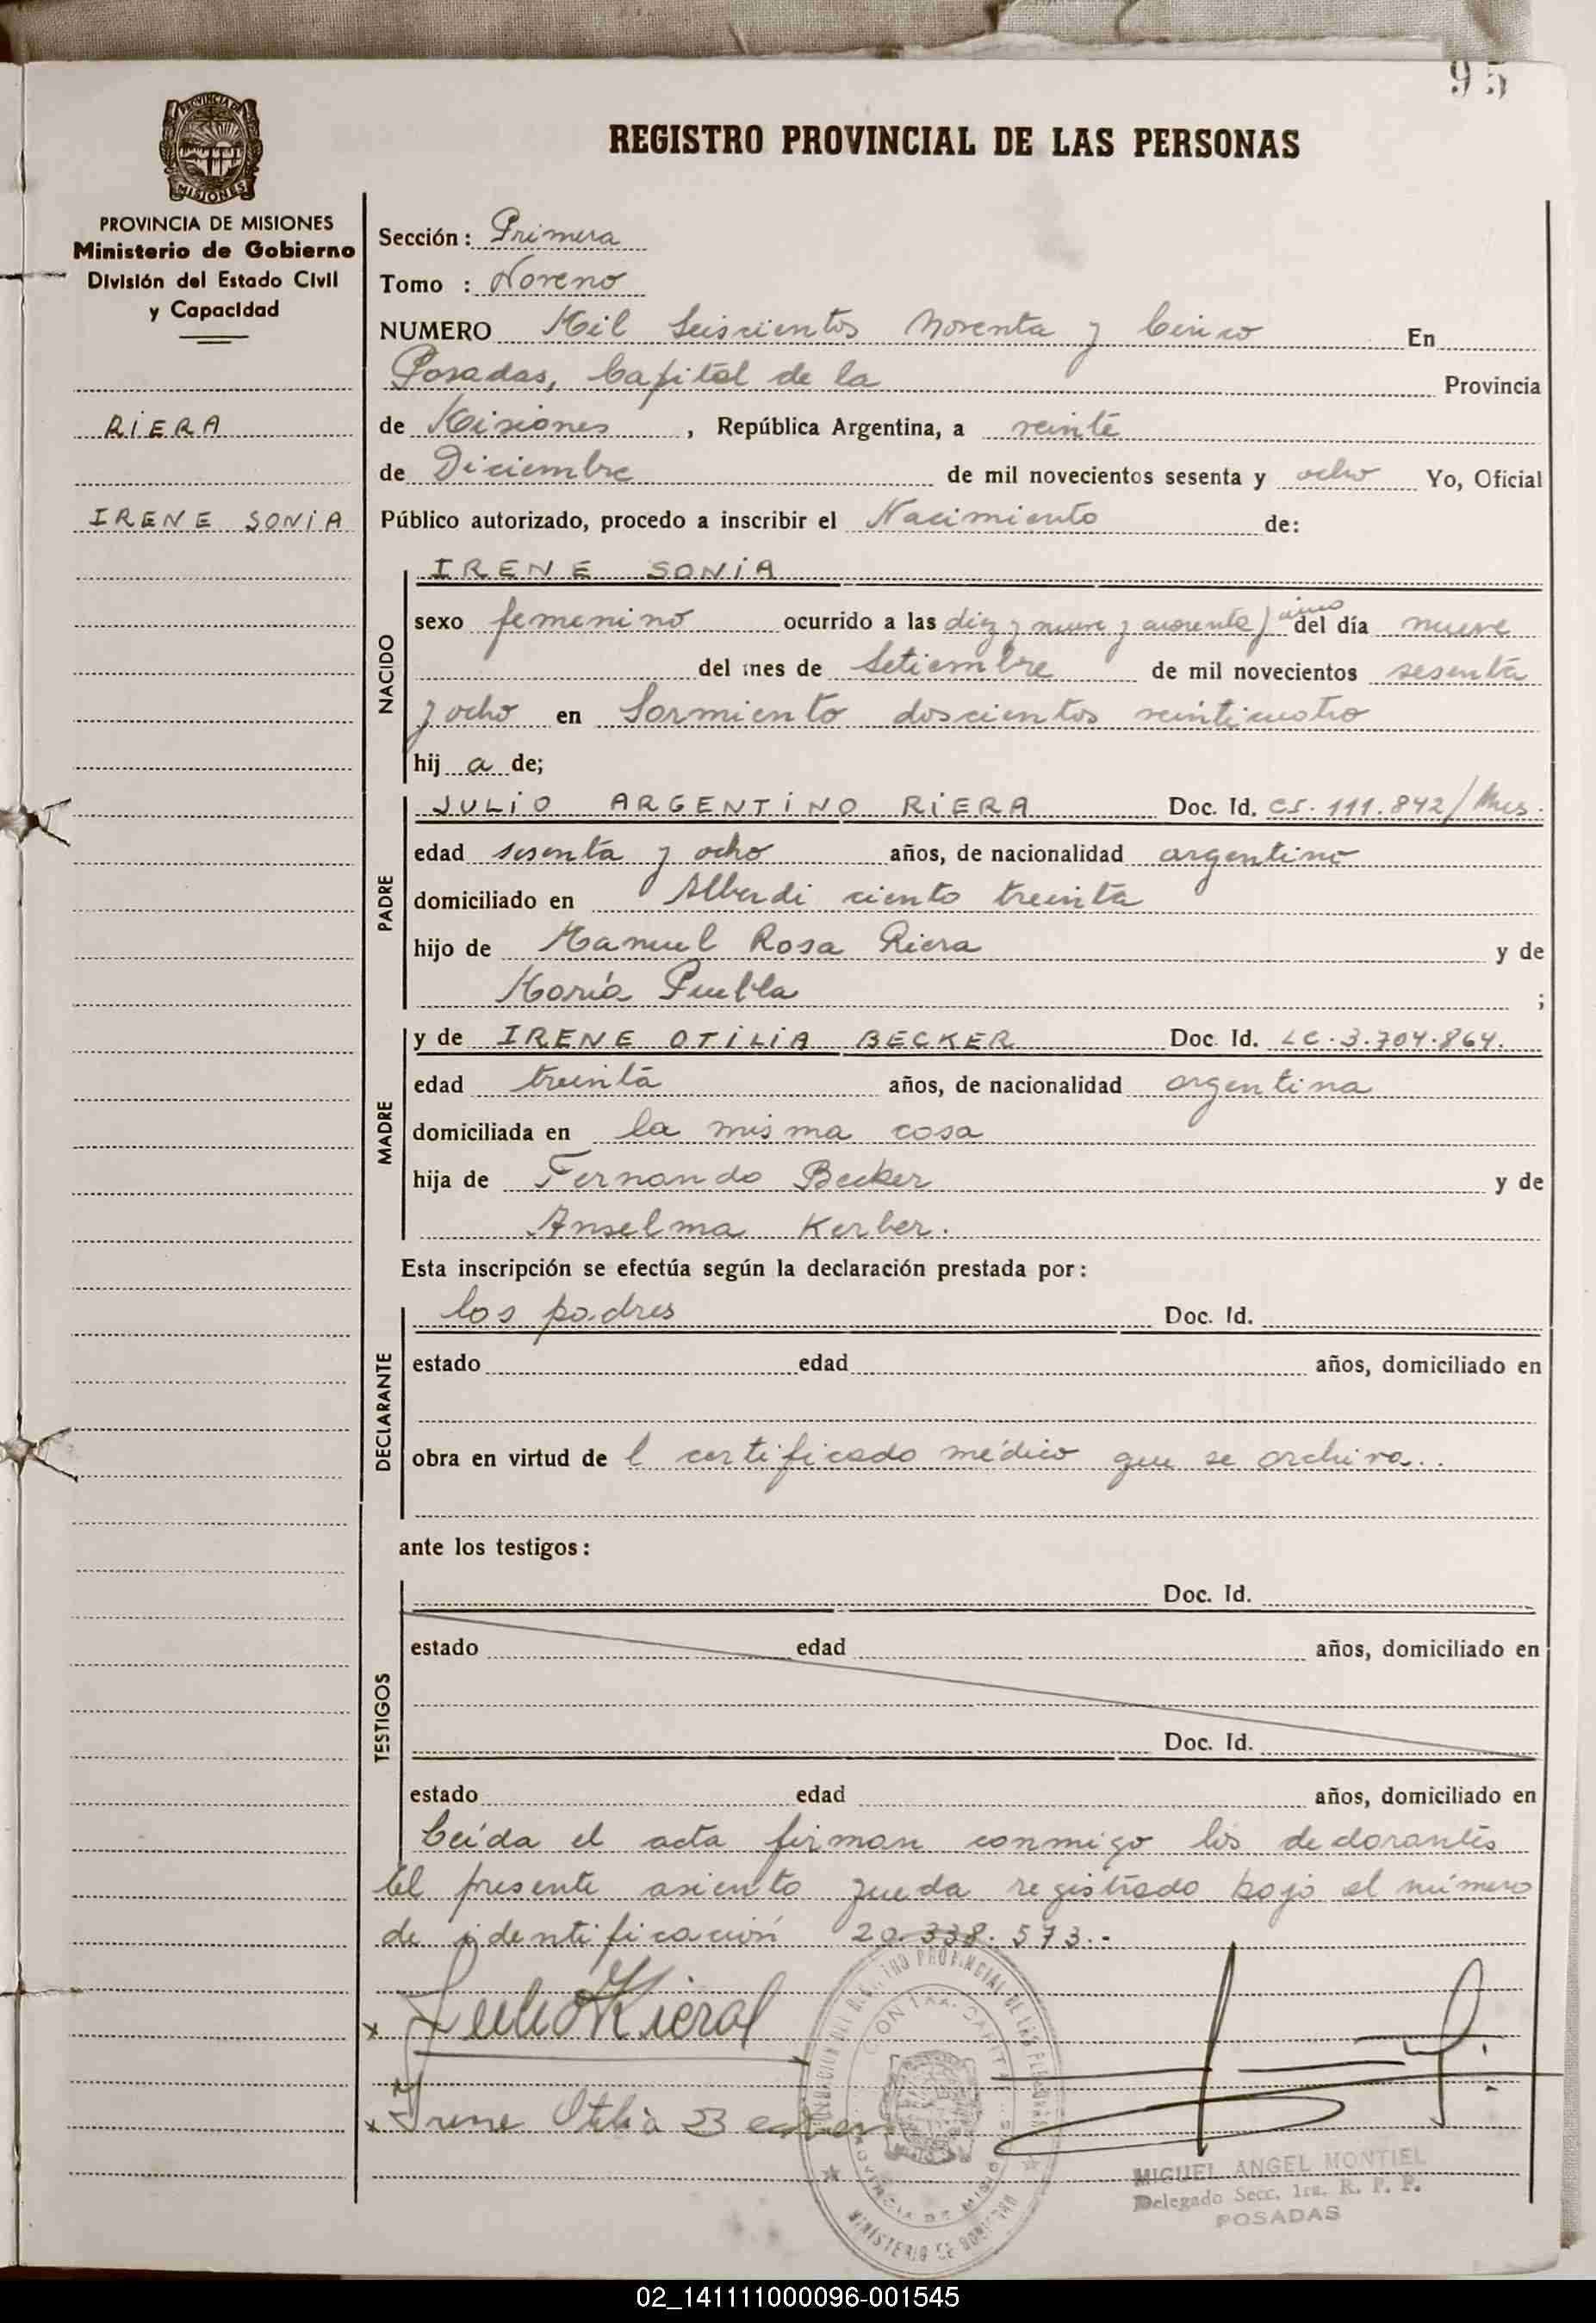 95
REGISTRO PROVINCIAL DE LAS PERSONAS
PROVINCIA DE MISIONES
PROVINCIA DE MISIONES
Ministerio de Gobierno
División del Estado Civil
y Capacidad
RIERA
IRENE SONIA
Sección: Primera
Tomo : Noveno
NUMERO Mil Seiscientos Noventa y Cinco En
Posadas, Capital de la Provincia
de Misiones, República Argentina, a veinte
de Diciembre de mil novecientos sesenta y ocho Yo, Oficial
Público autorizado, procedo a inscribir el Nacimiento de:
NACIDO
IRENE SONIA
sexo femenino ocurrido a las diez y nueve y cuarenta y cinco del día nueve
del mes de Setiembre de mil novecientos sesenta
y ocho en Sarmiento doscientos veinticuatro
hij a de;
PADRE
JULIO ARGENTINO RIERA Doc. Id. CI. 111.842/Mis.
edad sesenta y ocho años, de nacionalidad argentino
domiciliado en Alberdi ciento treinta
hijo de Manuel Rosa Riera y de
María Puebla ;
MADRE
y de IRENE OTILIA BECKER Doc. Id. LC.3.704.864.
edad treinta años, de nacionalidad argentina
domiciliada en la misma casa
hija de Fernando Becker y de
Anselma Kerber.
Esta inscripción se efectúa según la declaración prestada por:
DECLARANTE
los padres Doc. Id.
estado edad años, domiciliado en
obra en virtud de l certificado médico que se archiva..
ante los testigos:
TESTIGOS
Doc. Id.
estado edad años, domiciliado en
Doc. Id.
estado edad años, domiciliado en
Leída el acta firman conmigo los declarantes
El presente asiento queda registrado bajo el número
de identificación 20.338.573.-
x Julio Riera
x Irene Otilia Becker
PROVINCIAL DE LAS PERSONAS
MINISTERIO DE GOBIERNO
MIGUEL ANGEL MONTIEL
Delegado Secc. 1ra. R. P. P.
POSADAS
02_141111000096-001545